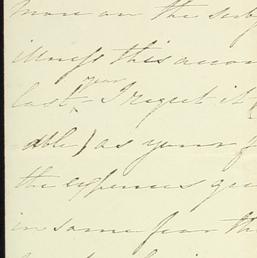 more on the sub
illness this
last year I regret it
able) as your f
the expenses gre
in some fear the